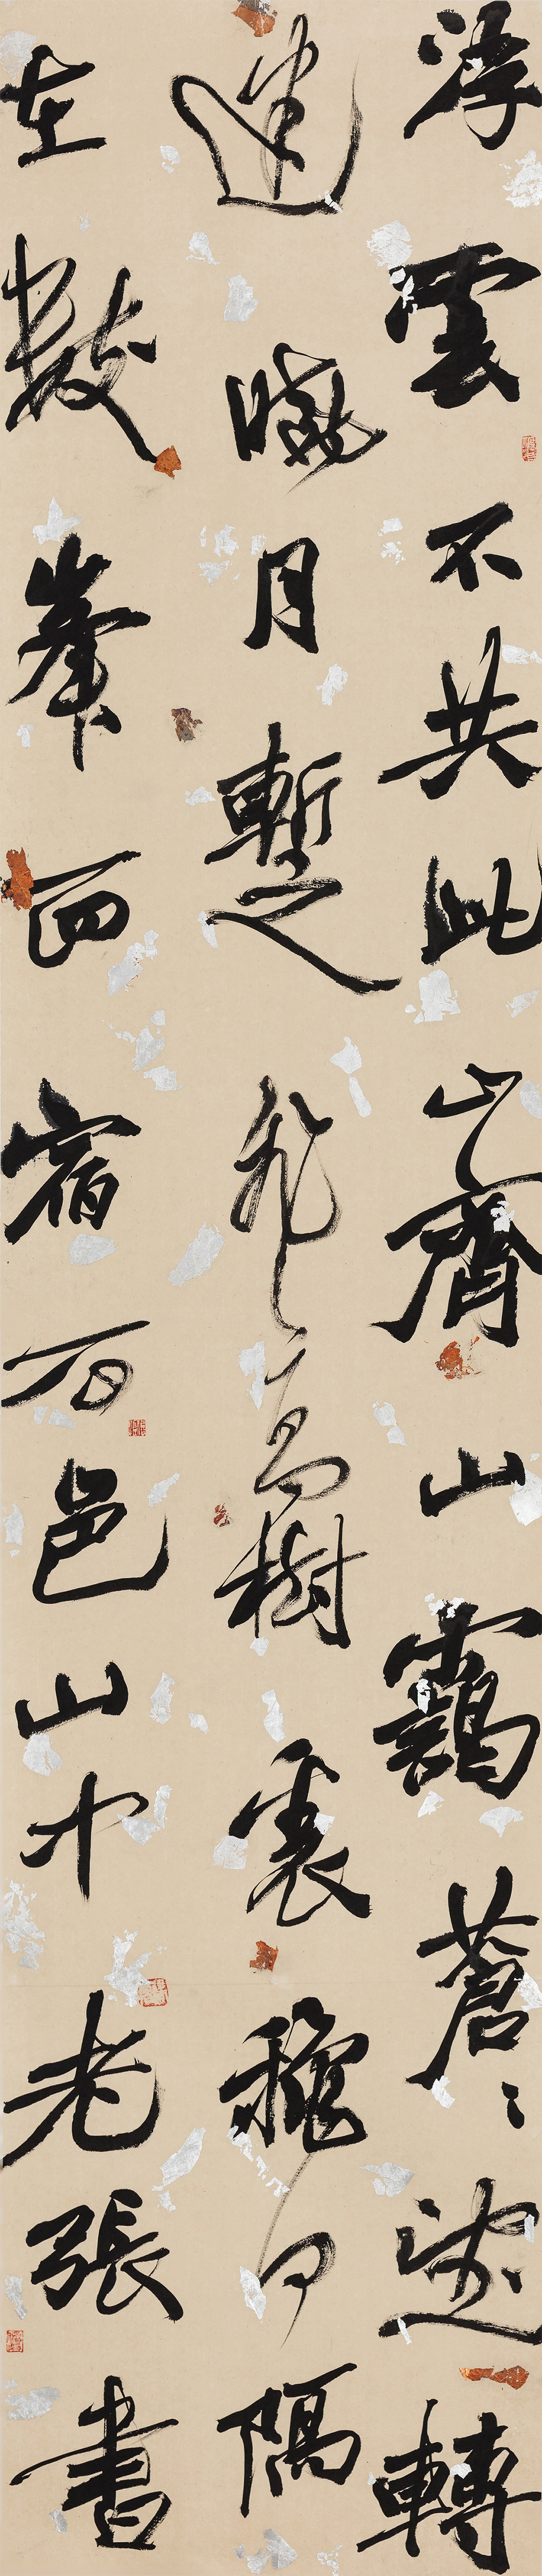 浮雲不共此山齊山靄蒼〻望轉
迷曉月暫飛高樹裏穐河隔
在數峯西宿石邑山中老張書